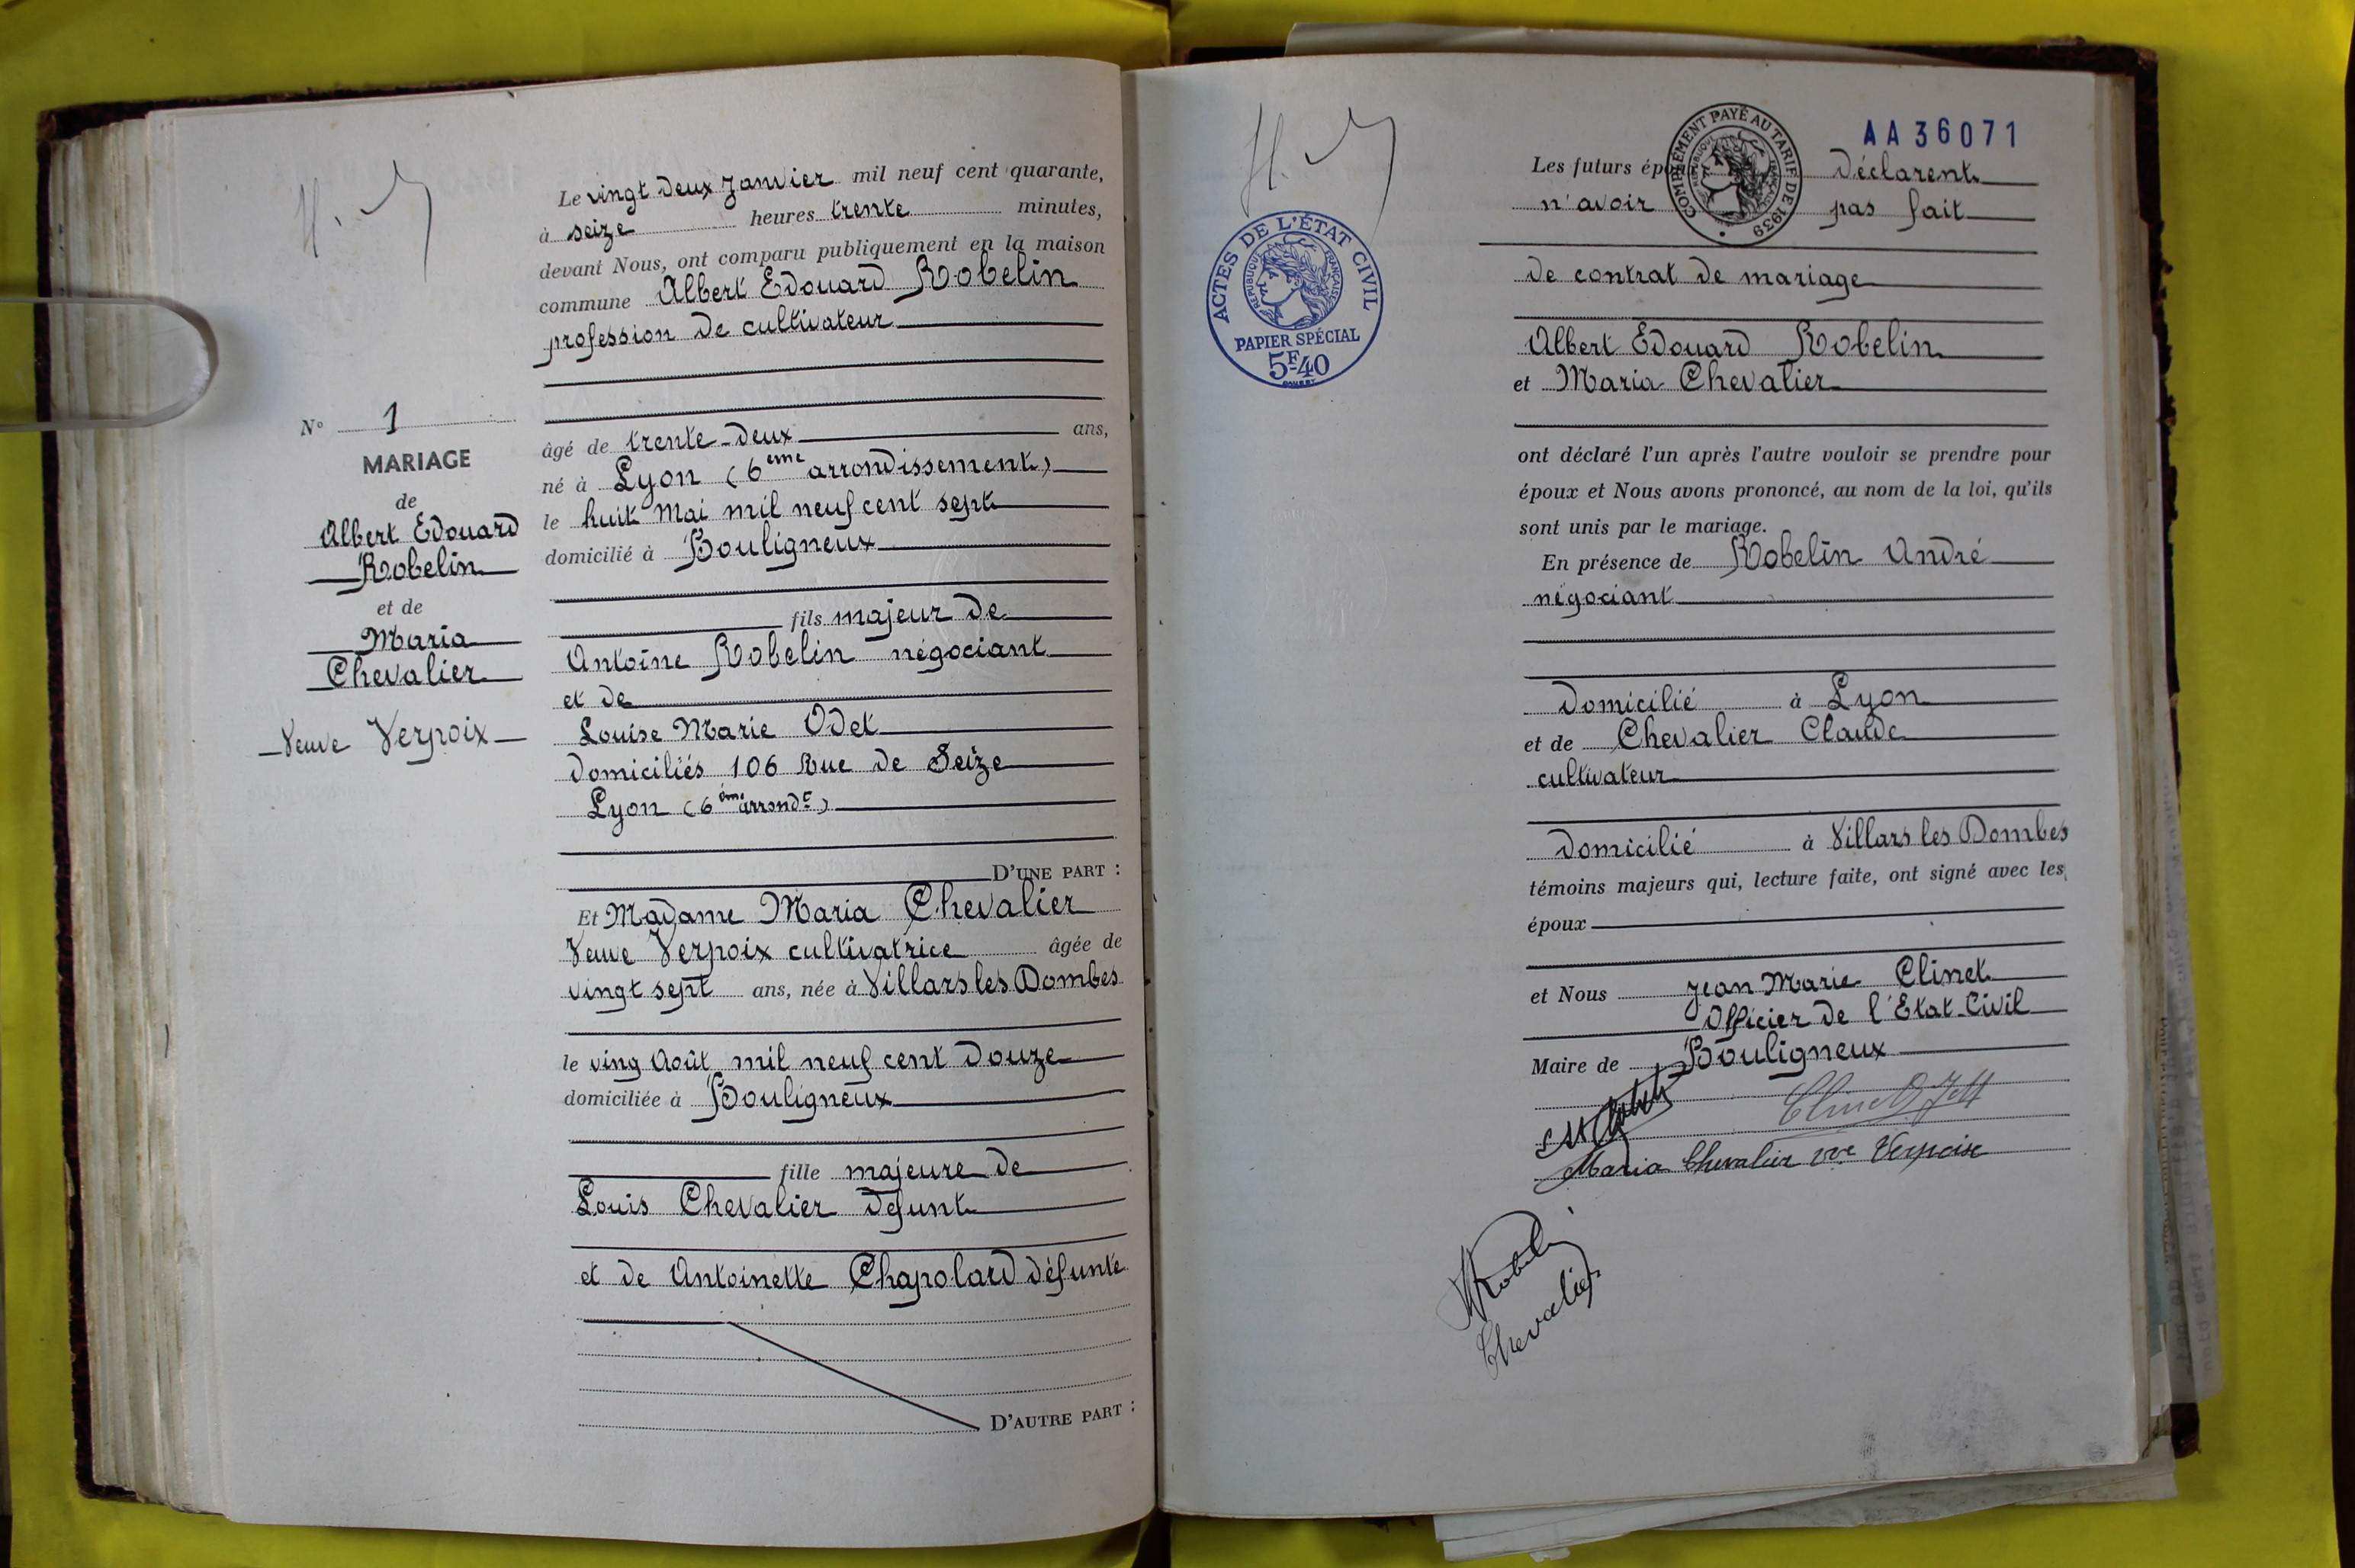 H.
Le vingt deux Janvier mil neuf cent quarante,
à seize heures trente minutes,
devant Nous, ont comparu publiquement en la maison
commune Albert Edouard Robelin
profession de cultivateur
N° 1
MARIAGE
de
Albert Edouard
Robelin
et de
Maria
Chevalier
Veuve Verpoix
âgé de trente-deux ans,
né à Lyon (6ème arrondissement)
le huit Mai mil neuf cent sept
domicilié à Bouligneux
fils majeur de
Antoine Robelin négociant
et de
Louise Marie Odet
domiciliés 106 Rue de Seize
Lyon (6ème arrondt)
D'UNE PART :
Et Madame Maria Chevalier
Veuve Verpoix cultivatrice âgée de
vingt sept ans, née à Villars les Dombes
le ving Août mil neuf cent douze
domiciliée à Bouligneux
fille majeure de
Louis Chevalier défunt
et de Antoinette Chapolard défunte
D'AUTRE PART :
H.
ACTES DE L'ÉTAT CIVIL
RÉPUBLIQUE FRANÇAISE
PAPIER SPÉCIAL
5F40
COMPLÉMENT PAYÉ AU TARIF DE 1939
AA36071
Les futurs épo déclarent
n'avoir pas fait
de contrat de mariage
Albert Edouard Robelin
et Maria Chevalier
ont déclaré l'un après l'autre vouloir se prendre pour
époux et Nous avons prononcé, au nom de la loi, qu'ils
sont unis par le mariage.
En présence de Robelin André
négociant
domicilié à Lyon
et de Chevalier Claude
cultivateur
domicilié à Villars les Dombes
témoins majeurs qui, lecture faite, ont signé avec les
époux
et Nous Jean Marie Clinet
Officier de l'Etat-Civil
Maire de Bouligneux
Clinet J M
Maria Chevalier vve Verpoix
Robelin
Chevalier